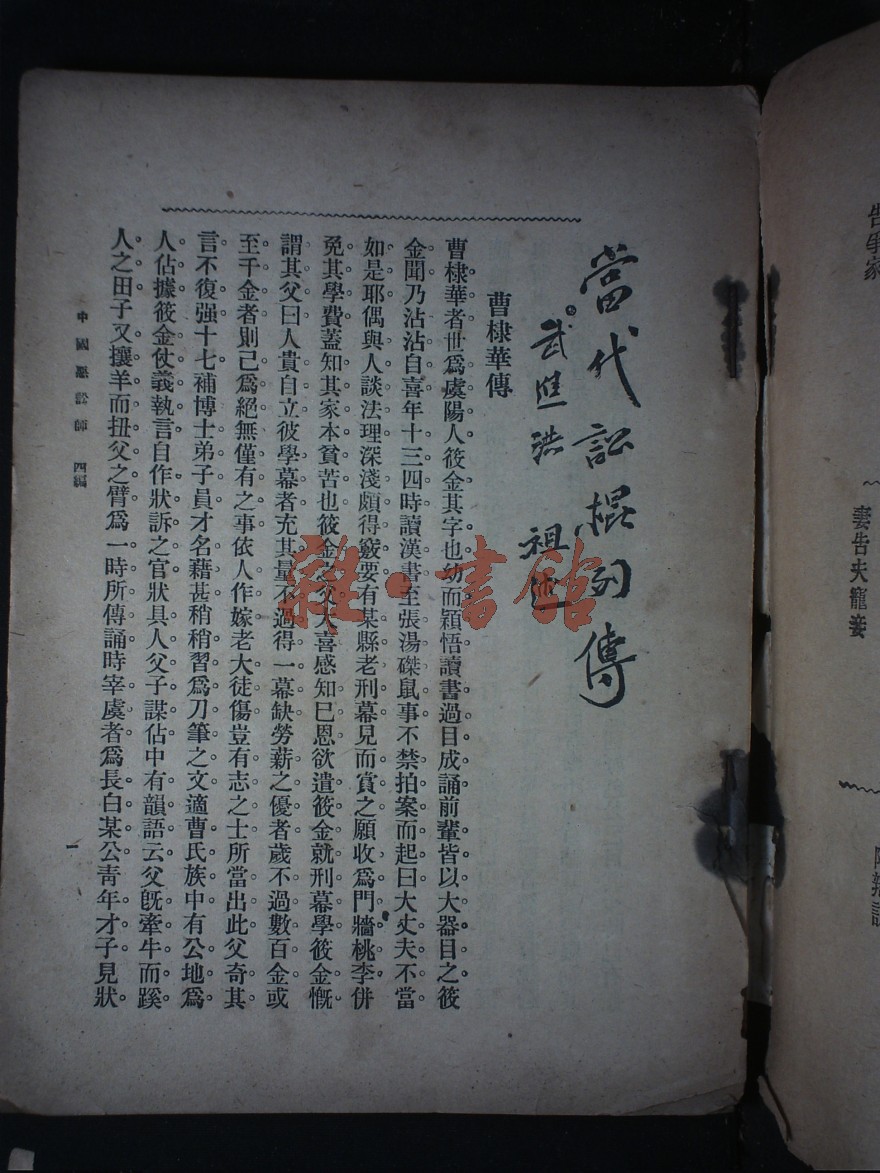 當代訟棍列傳
武進洪 祖
曹棣華傳
曹棣華者世爲虞陽人筱金其字也幼而穎悟讀書過目成誦前輩皆以大器目之筱
金聞乃沾沾自喜年十三四時讀漢書至張湯磔鼠事不禁拍案而起曰大丈夫不當
如是耶偶與人談法理深淺頗得竅要有某縣老刑幕見而賞之願收爲門牆桃李併
免其學費蓋知其家本貧苦也筱金之父大喜感知巳恩欲遣筱金就刑幕學筱金慨
謂其父曰人貴自立彼學幕者充其量不過得一幕缺勞薪之優者歲不過數百金或
至千金者則己爲絕無僅有之事依人作嫁老大徒傷豈有志之士所當出此父奇其
言不復强十七補博士弟子員才名藉甚稍稍習爲刀筆之文適曹氏族中有公地爲
人佔據筱金仗義執言自作狀訴之官狀具人父子謀佔中有韻語云父旣牽牛而蹊
人之田子又攘羊而扭父之臂爲一時所傳誦時宰虞者爲長白某公靑年才子見狀
中國惡訟師 四編
一
告爭家
妻告夫寵妾
雜·書館